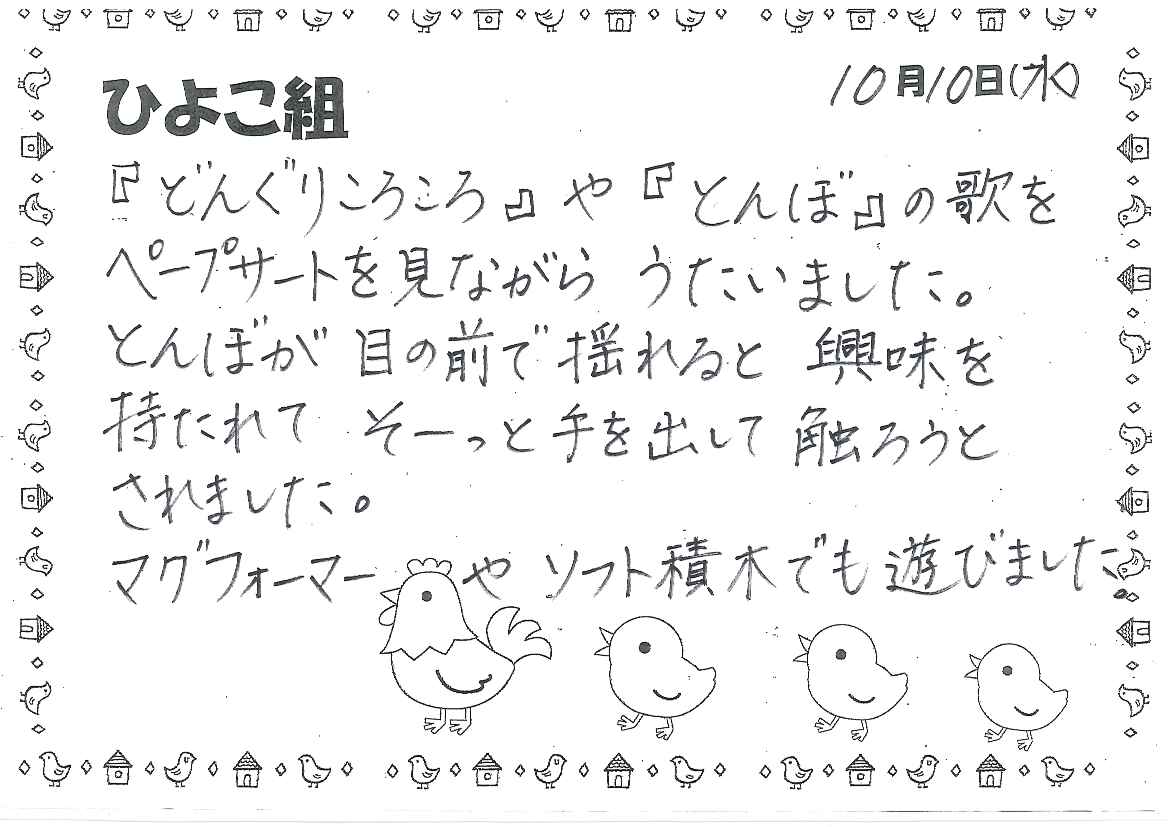 ひよこ組
10月10日(水)
『どんぐりころころ』や『とんぼ』の歌を
ペープサートを見ながら うたいました。
とんぼが 目の前で 揺れると 興味を
持たれて そーっと手を出して 触ろうと
されました。
マグフォーマーや ソフト積木でも 遊びました。